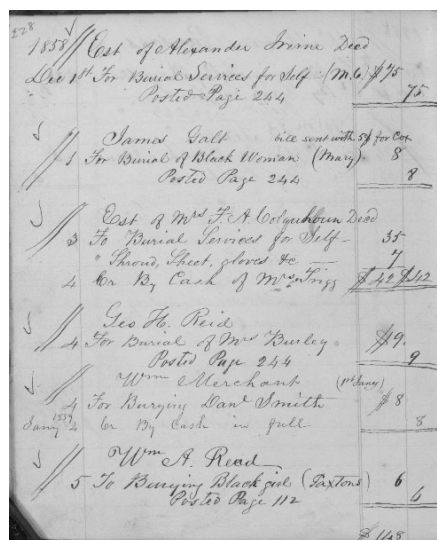 228
1858 Est of Alexander Irvine Decd
Dec 1st For Burial Services for Self - (M.C.) $75
Posted Page 244 75
James Galt bill sent with 5$ for Cox
1 For Burial of Black Woman (Mary) 8
Posted Page 244 8
Est of Mrs F. A. Colquhoun Decd
3 To Burial Services for Self - 35
" Shroud, Sheet, gloves &c 7
4 Cr By Cash of Mrs Trigg $42 $42
Geo H. Reid
4 For Burial of Mrs Burley $9.
Posted Page 244 9
Wm Merchant (1st Jany)
4 For Burying Danl Smith $8
Jany 1859 4 Cr By Cash in full 8
Wm A. Read
5 To Burying Black girl (Paxtons) 6
Posted Page 112 6
$148